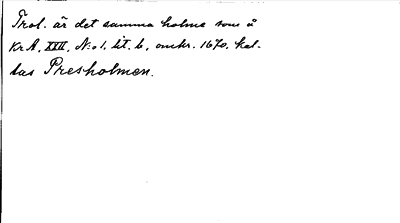 Trol. är det samma holme som å
Kr A, XXII, No 1, lit. b, omkr. 1670, kal-
las Presholmen.